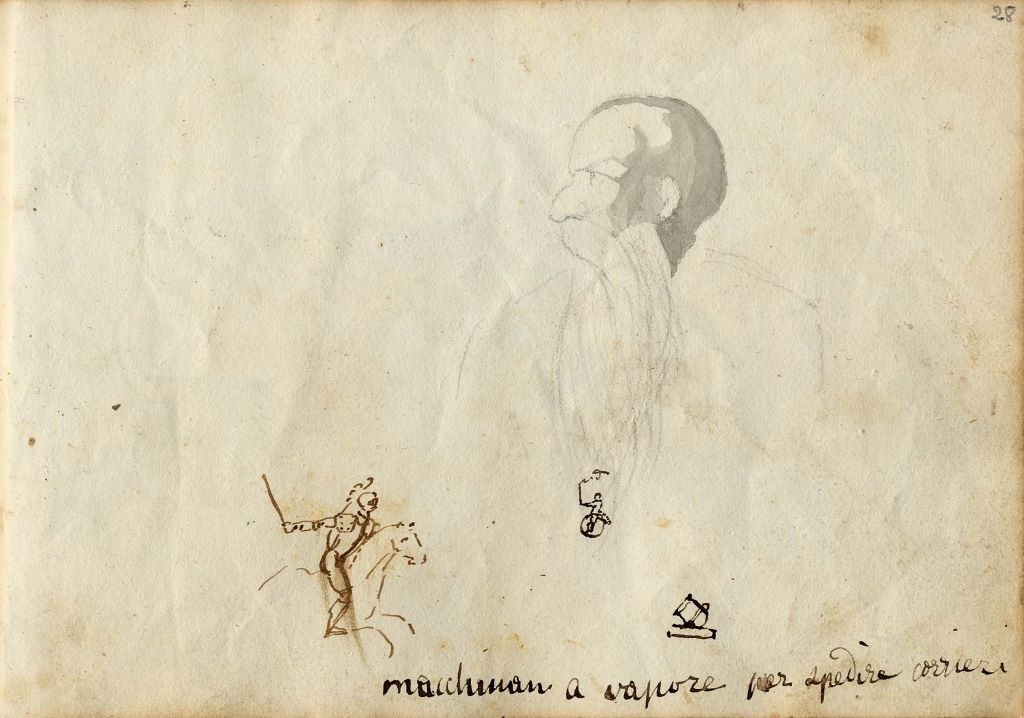 28
macchinan a vapore per spedire corrieri